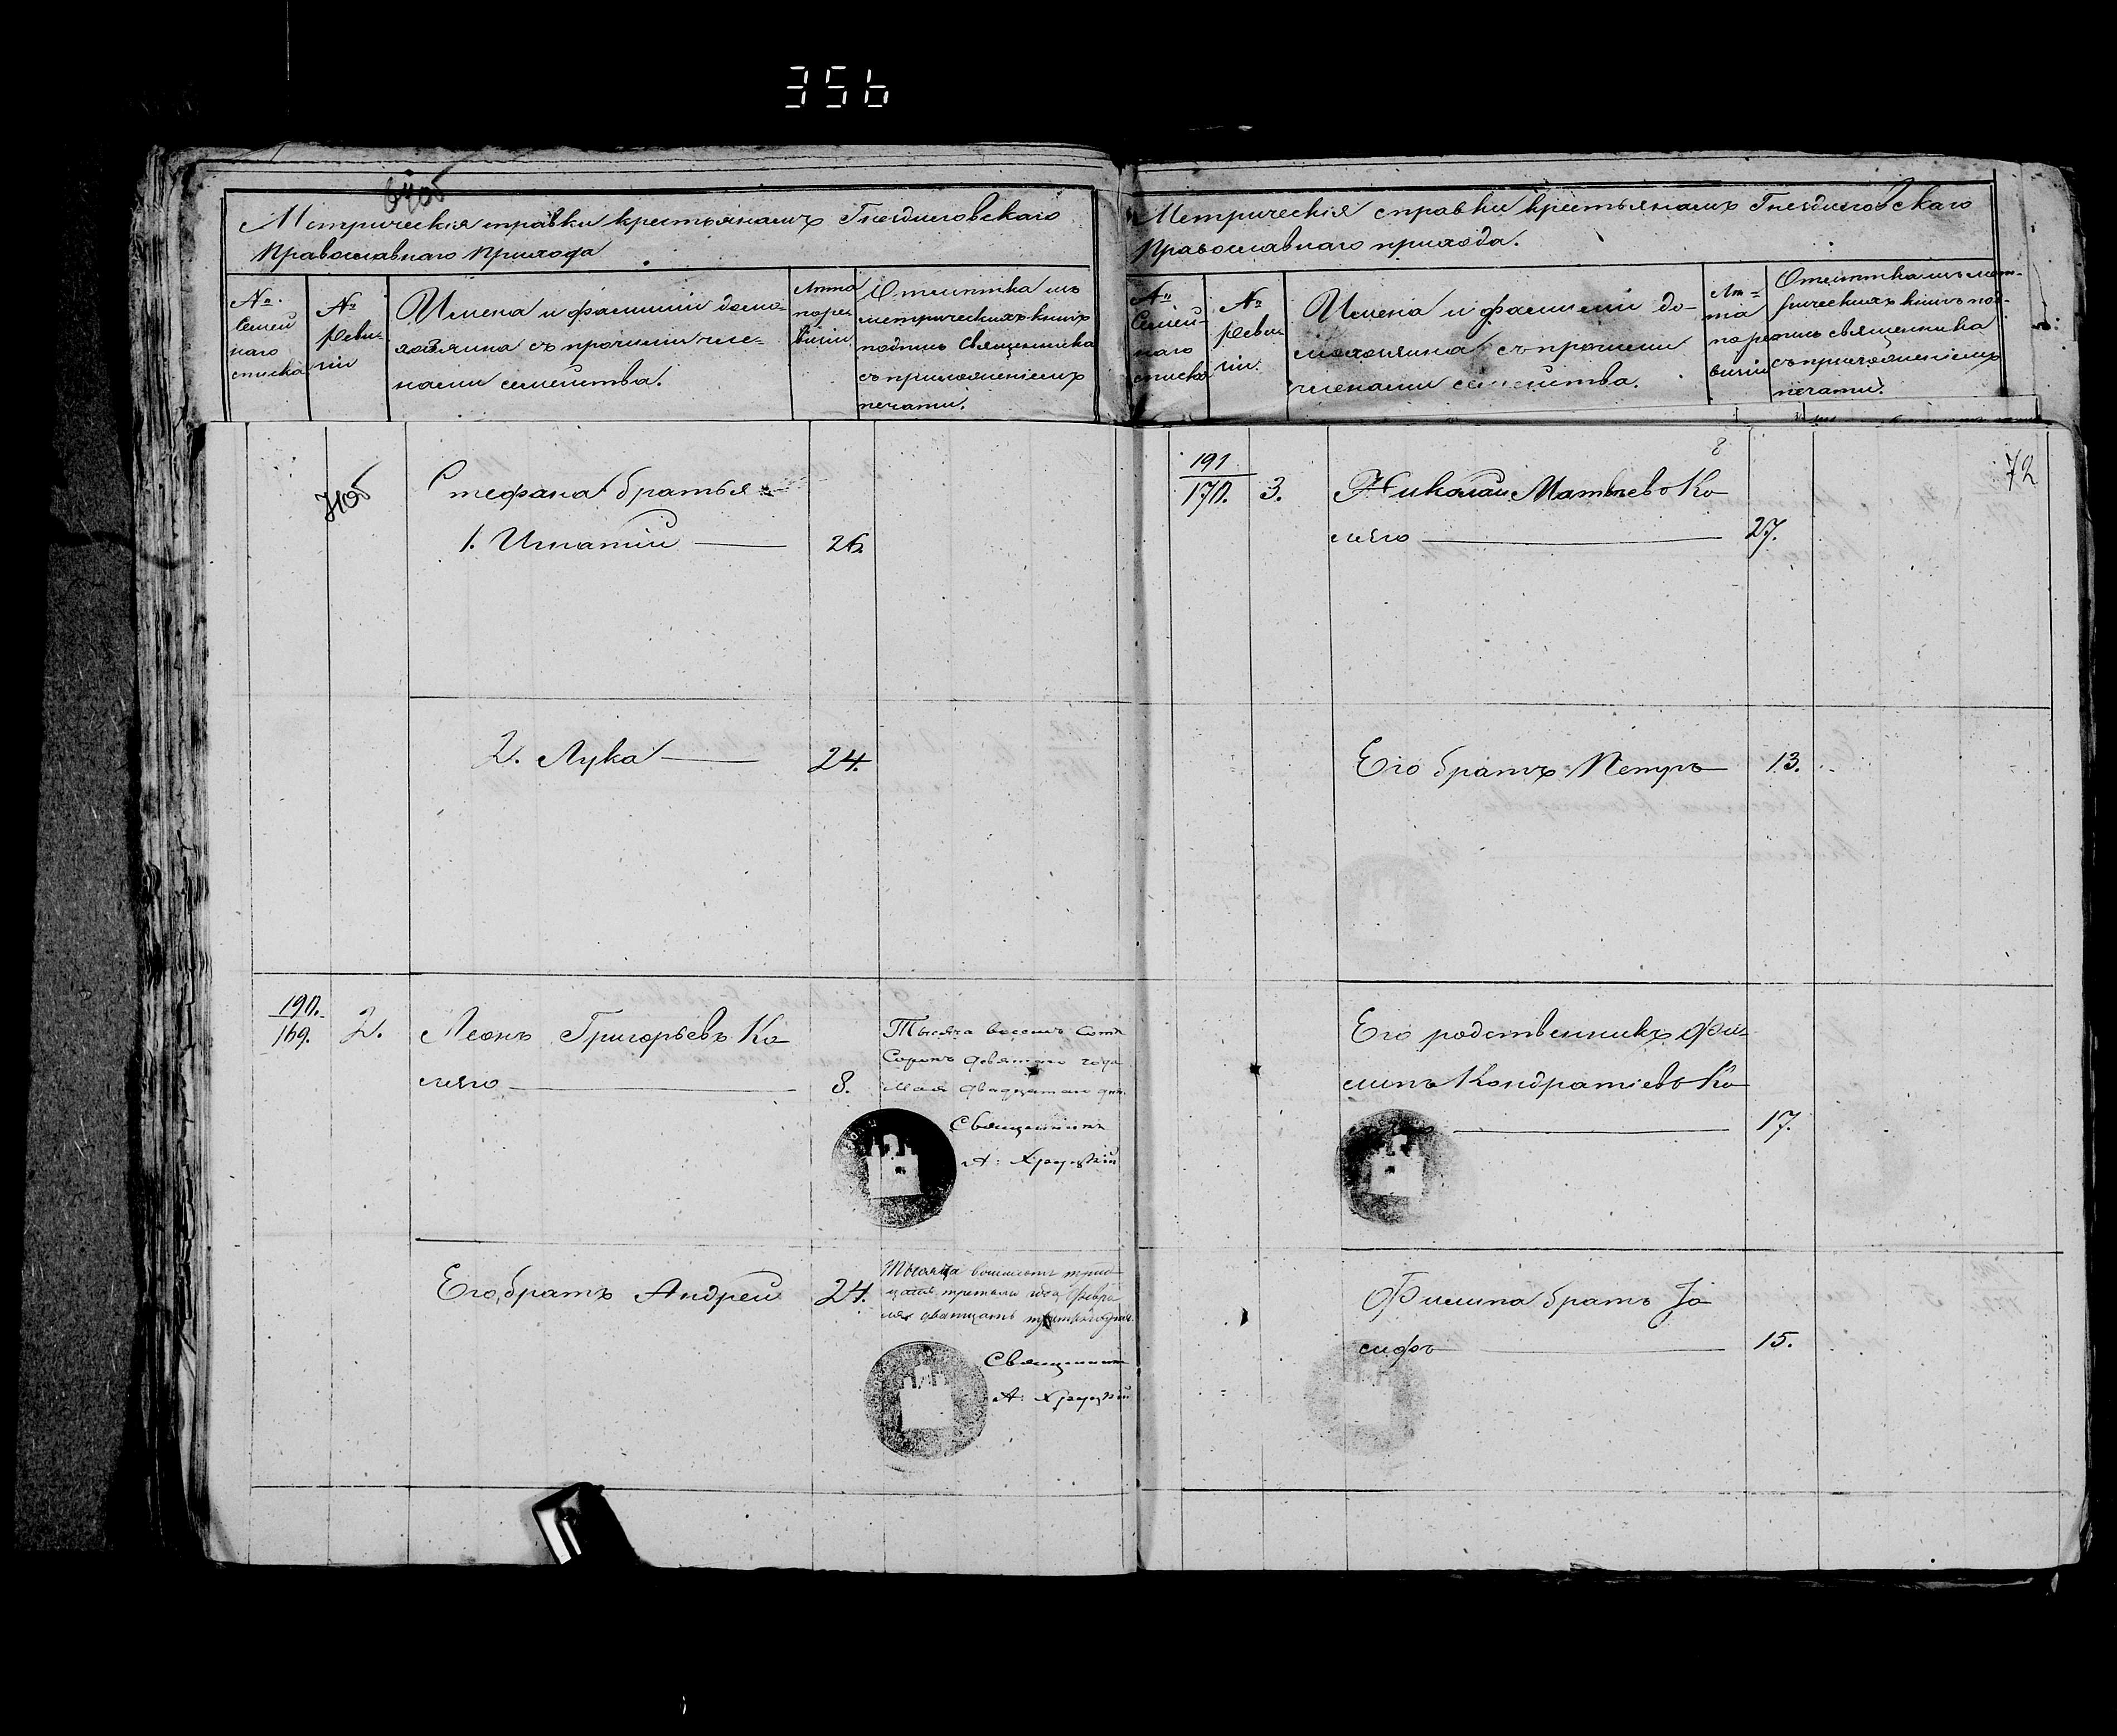 356
Метрическія справки крестьянамъ Гнездиловскаго
Православнаго Прихода
№
Семей
наго
списка
№
Реви-
зіи
Имена и фамиліи домо-
хозяина съ прочими чле-
нами семейства.
Лѣта
по ре
визіи
Отмѣтка изъ
метрическихъ книгъ
подпись Священника
съ приложеніемъ
печати.
Стефана братья
1. Игнатій 26
2. Лука 24.
190.
169. 2. Леонъ Григорьевъ Ко
8.
Тысяча восемь сотъ
Сорокъ девятаго года
Мая двадцатаго дня.
Священникъ
Его братъ Андрей 24.
Тысяча восемьсотъ трид
цать третьяго года Февра
ля
Священникъ
Метрическія справки крестьянамъ Гнездиловскаго
Православнаго прихода.
№
Семей-
наго
списка
№
Реви
зіи.
Имена и фамиліи до-
мохозяина съ прочими
членами семейства.
Лѣ-
та
по ре
визіи
Отмѣтка изъ мет-
рическихъ книгъ под-
пись священника
съ приложеніемъ
печати.
72
191
170. 3. Николай Матвѣевъ Ко
27.
Его братъ Петръ 13.
Его родственникъ Фи-
липъ Кондратіевъ Ко
17.
Филипа братъ Іо
сифъ 15.